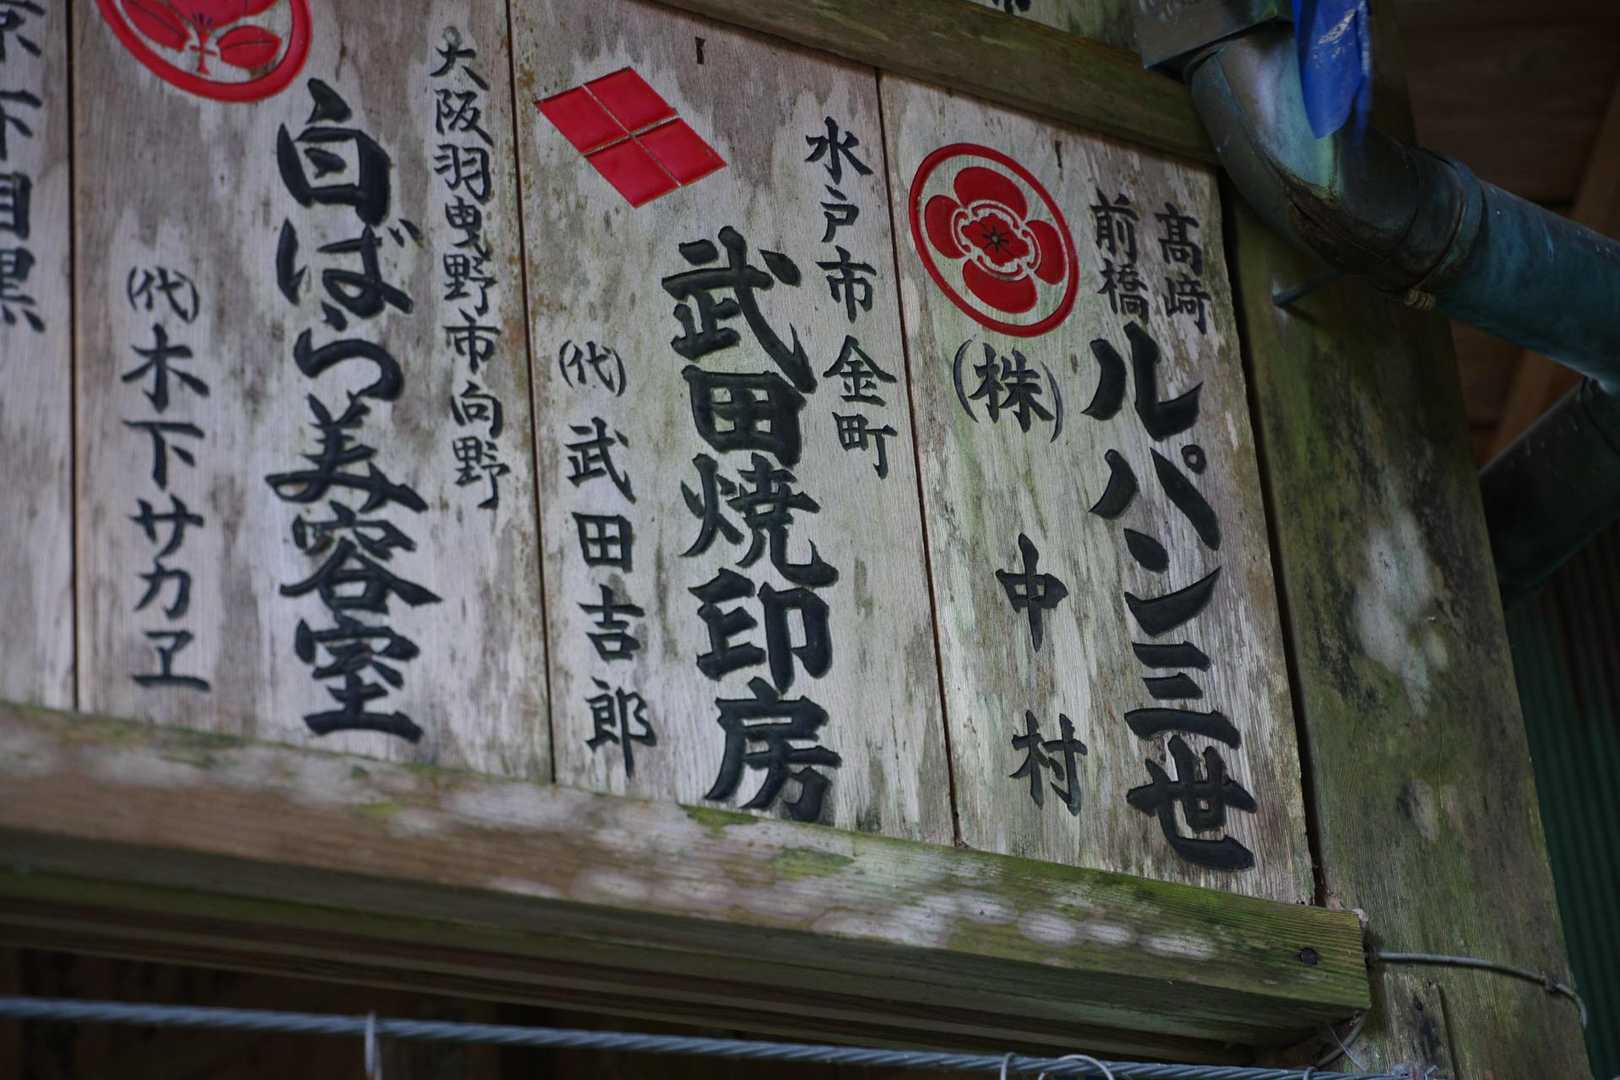 高﨑
前橋
ルパン三世
(株)中村
水戸市金町
武田焼印房
(代)武田吉郎
大阪羽曳野市向野
白ばら美容室
(代)木下サカヱ
京下目黒